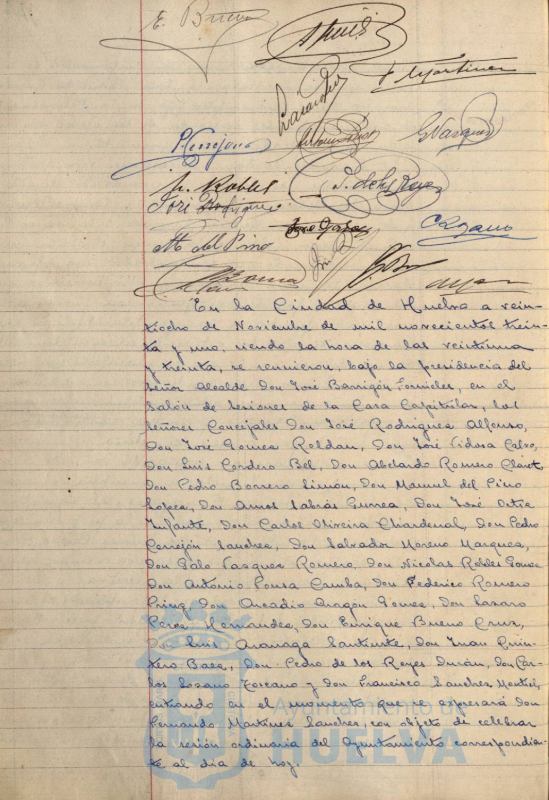 E. Bueno
F Martinez
P. Cerrejon
G Vazquez
N. Robles
P. de los Reyes
José Rodriguez
José Gomez
C Lozano
M. del Pino
En la Ciudad de Huelva a vein-
tiocho de Noviembre de mil novecientos trein-
ta y uno, siendo la hora de las veintiuna
y treinta, se reunieron, bajo la presidencia del
Señor Alcalde Don José Barrigón Fornieles, en el
Salón de Sesiones de la Casa Capitular, los
Señores Concejales Don José Rodríguez Alfonso,
Don José Gomez Roldan, Don José Vidosa Calvo,
Don Luis Cordero Bel, Don Abelardo Romero Claret,
Don Pedro Borrero Limón, Don Manuel del Pino
Lopez, Don Amos Sabrás Gurrea, Don José Ortiz
Infante, Don Carlos Oliveira Chardenal, Don Pedro
Cerrejon Sanchez, Don Salvador Moreno Marquez,
Don Galo Vazquez Romero, Don Nicolas Robles Gomez
Don Antonio Pousa Camba, Don Federico Romero
Prinz, Don Arcadio Aragon Gomez, Don Lazaro
Perez Hernandez, Don Enrique Bueno Cruz,
Don Luis Aranaga Santiuste, Don Juan Quin-
tero Baez, Don Pedro de los Reyes Durán, Don Car-
los Lozano Toscano y Don Francisco Sanchez Montiel,
entrando en el momento que se expresará Don
Fernando Martinez Sanchez, con objeto de celebrar
la sesión ordinaria del Ayuntamiento correspondien-
te al día de hoy.
Ayuntamiento de
HUELVA